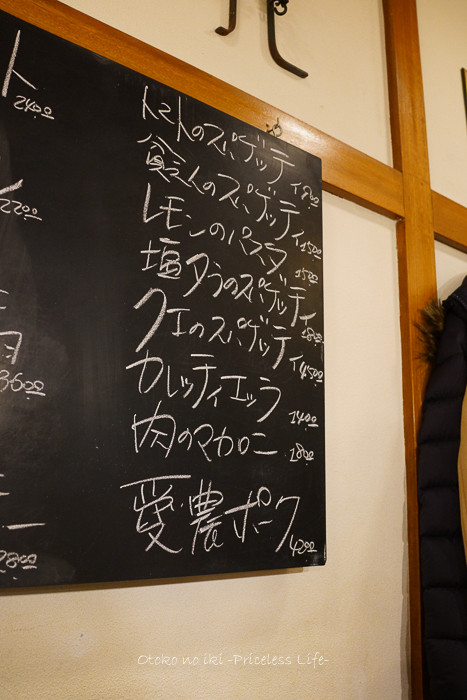 ト
2400
2200
3600
2800
トマトのスパゲッティ 1800
貧乏人のスパゲッティ 1500
レモンのパスタ 1500
塩タラのスパゲッティ 1800
クエのスパゲッティ 4500
カレッティエッラ 1400
肉のマカロニ 1800
愛農ポーク 4200
Otoko no iki -Priceless Life-